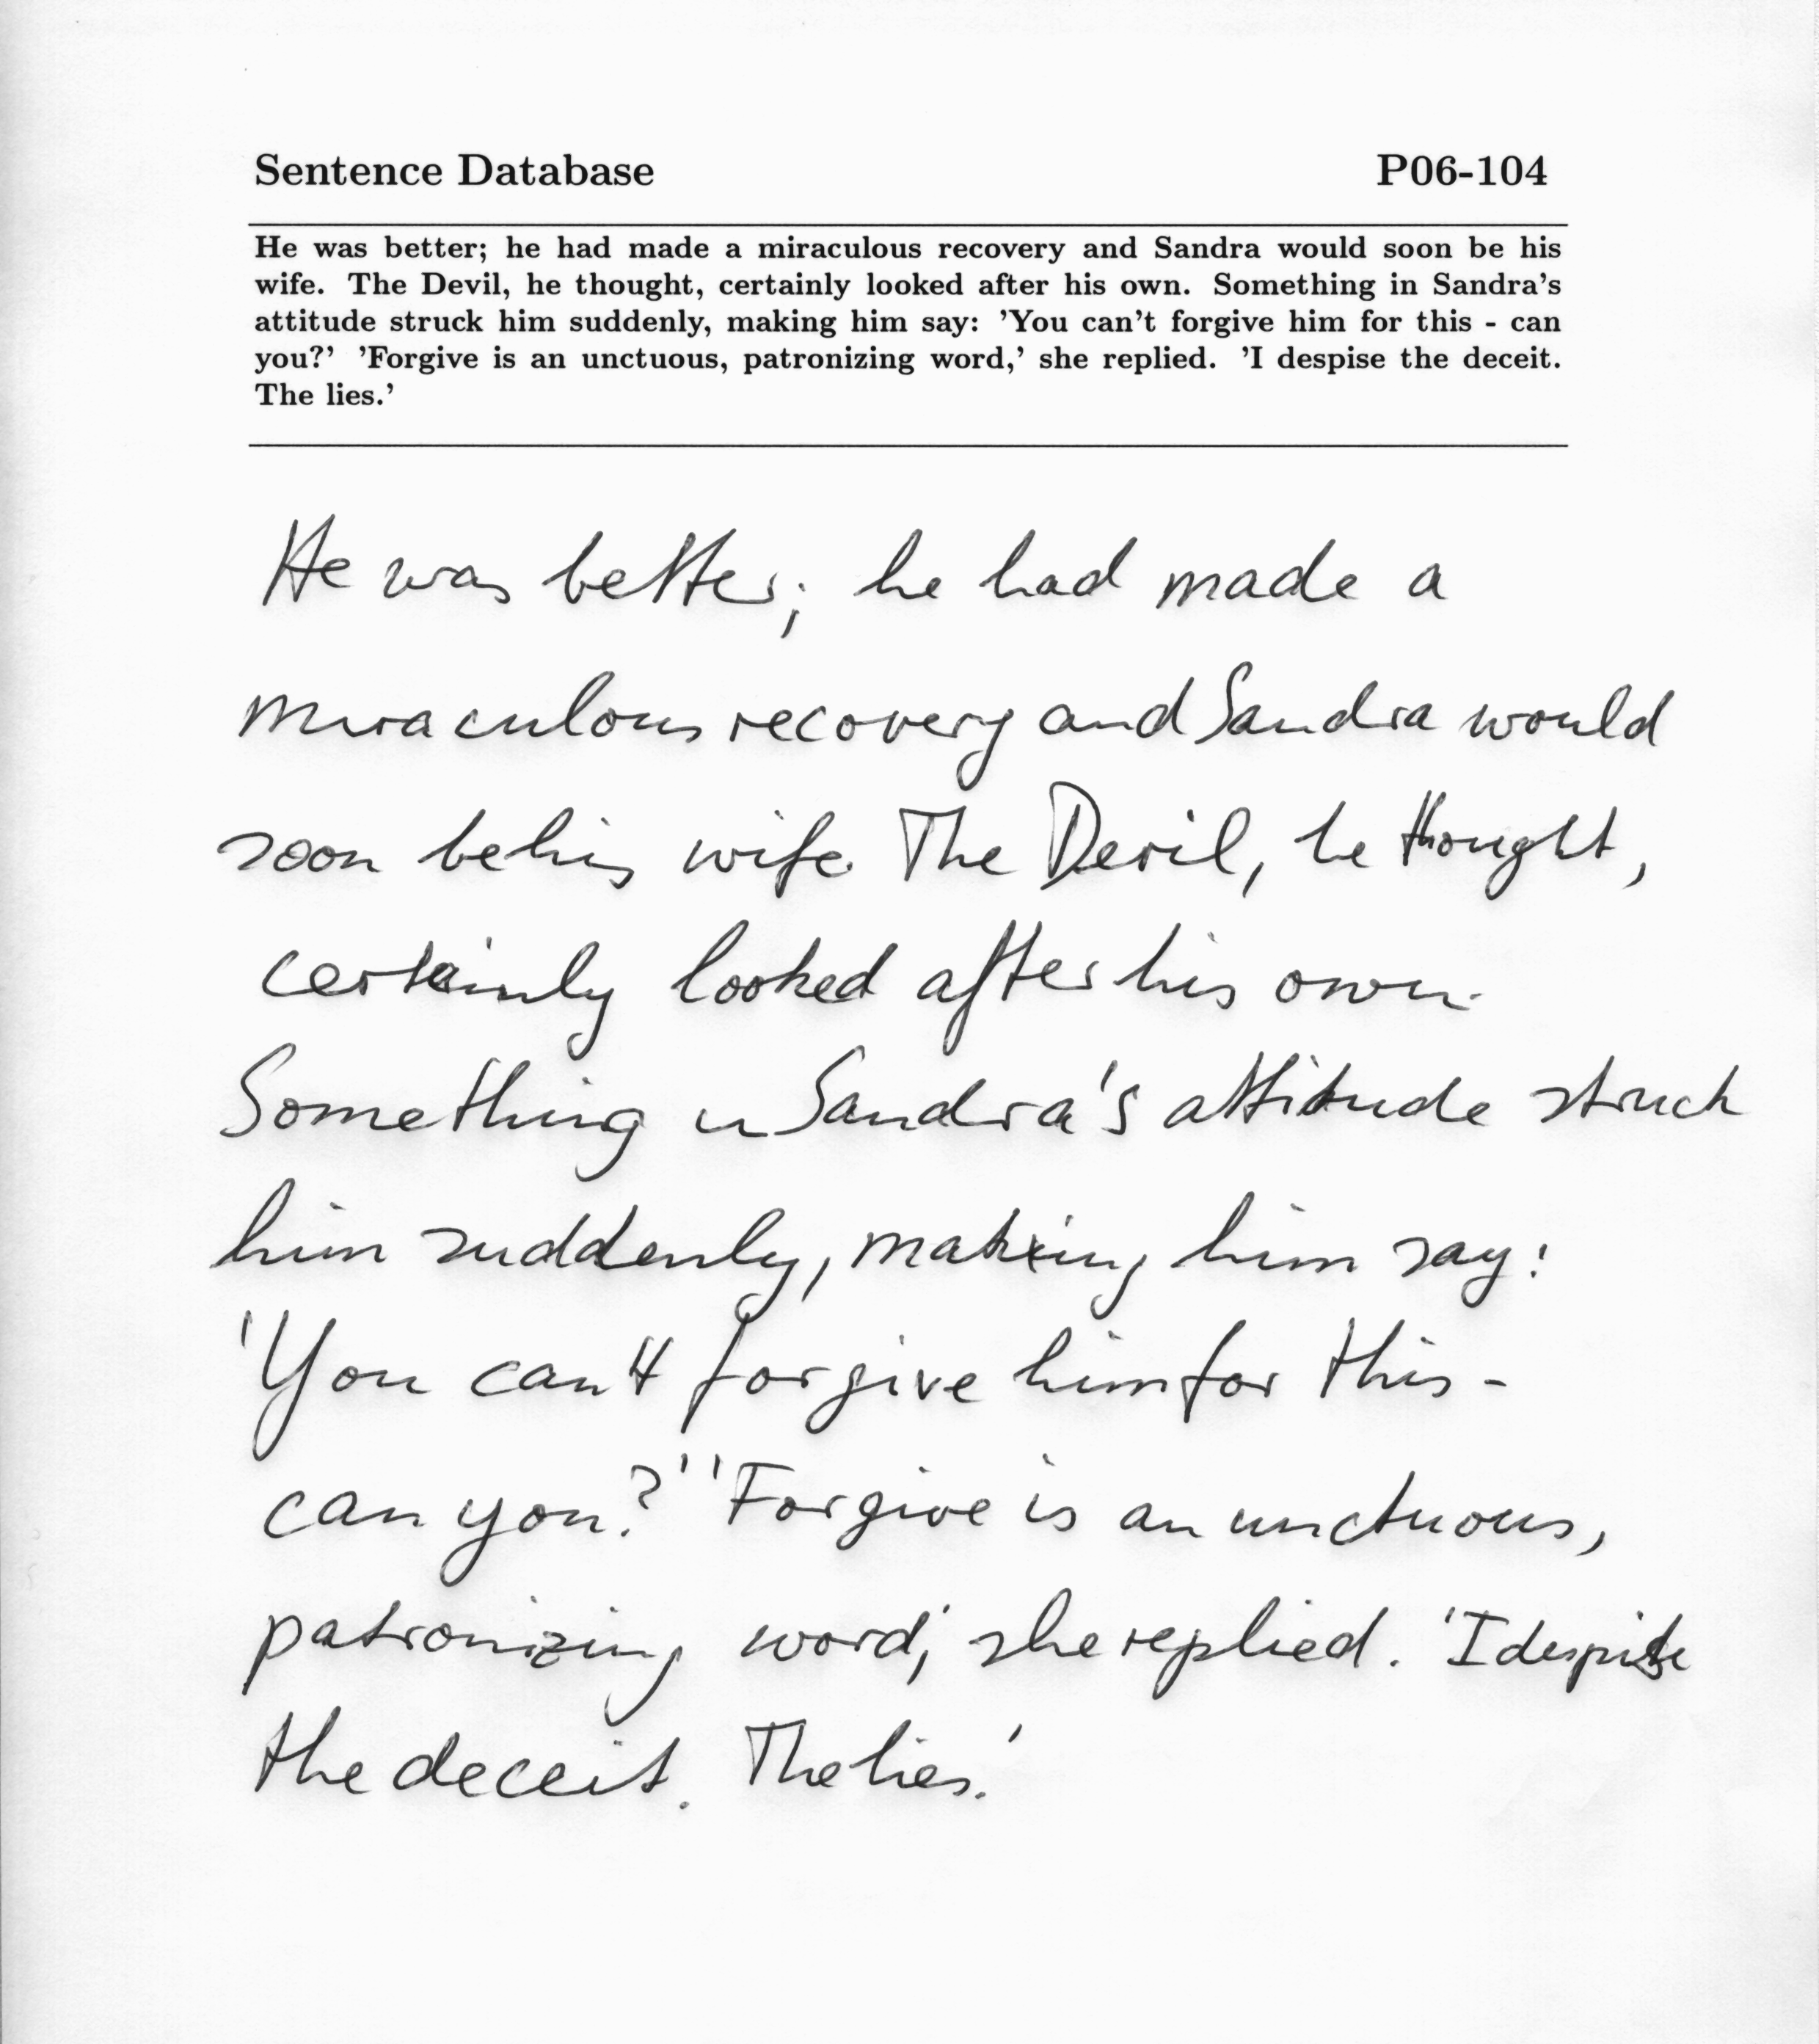 Sentence Database P06-104
He was better; he had made a miraculous recovery and Sandra would soon be his
wife. The Devil, he thought, certainly looked after his own. Something in Sandra's
attitude struck him suddenly, making him say: 'You can't forgive him for this - can
you?' 'Forgive is an unctuous, patronizing word,' she replied. 'I despise the deceit.
The lies.'
He was better; he had made a
miraculous recovery and Sandra would
soon be his wife. The Devil, he thought,
certainly looked after his own.
Something in Sandra's attitude struck
him suddenly, making him say:
'You can't forgive him for this -
can you?' 'Forgive is an unctuous,
patronizing word,' she replied. 'I despise
the deceit. The lies.'